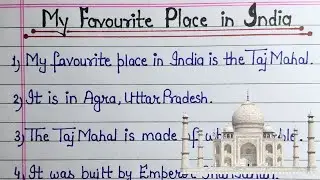 My Favourite Place in India
1) My favourite place in India is the Taj Mahal.
2) It is in Agra, Uttar Pradesh.
3) The Taj Mahal is made of
4) It was built by Emperor